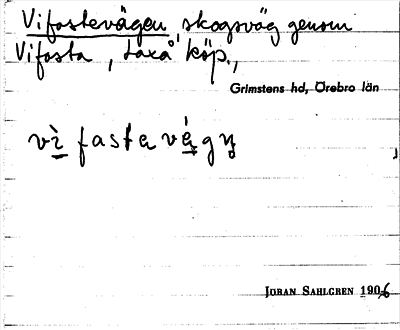 Vifastevägen, skogsväg genom
Vifasta, Laxå köp.,
Grimstens hd, Örebro län
JORAN SAHLGREN 1906